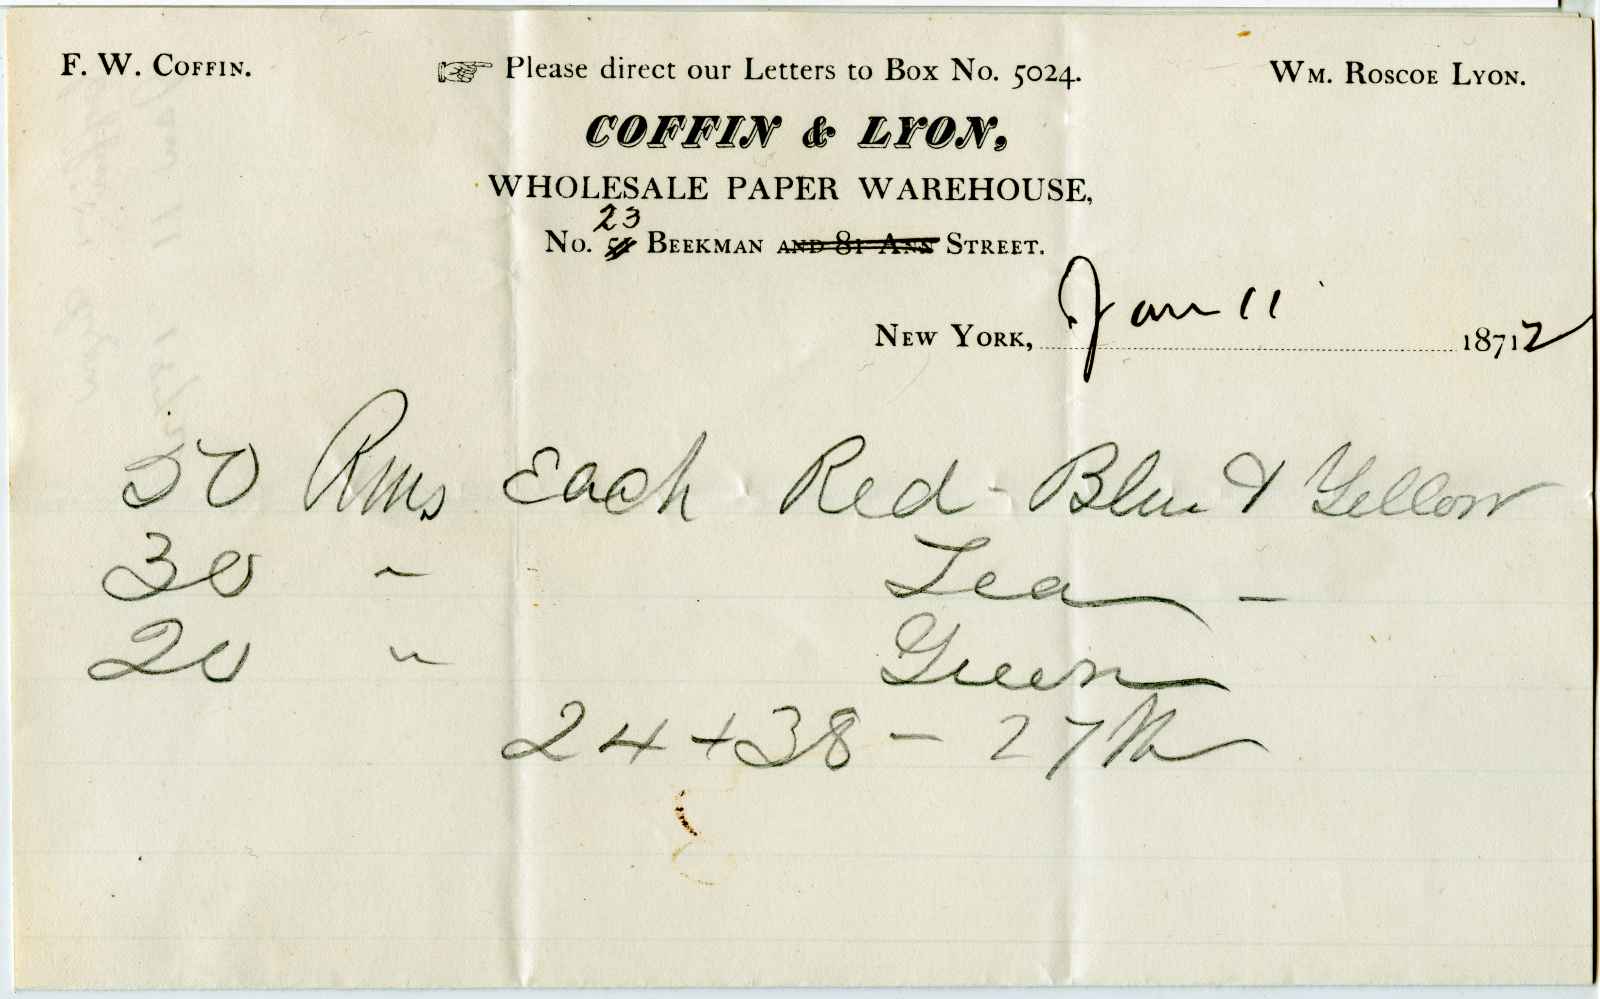 F. W. COFFIN.
☞ Please direct our Letters to Box No. 5024.
WM. ROSCOE LYON.
COFFIN & LYON,
WHOLESALE PAPER WAREHOUSE,
23
No. BEEKMAN AND 81 ANN STREET.
Jan 11
NEW YORK, 18712
50 Rms Each Red - Blue & Yellow
30 " Tea -
20 " Green
24 + 38 - 27 lb